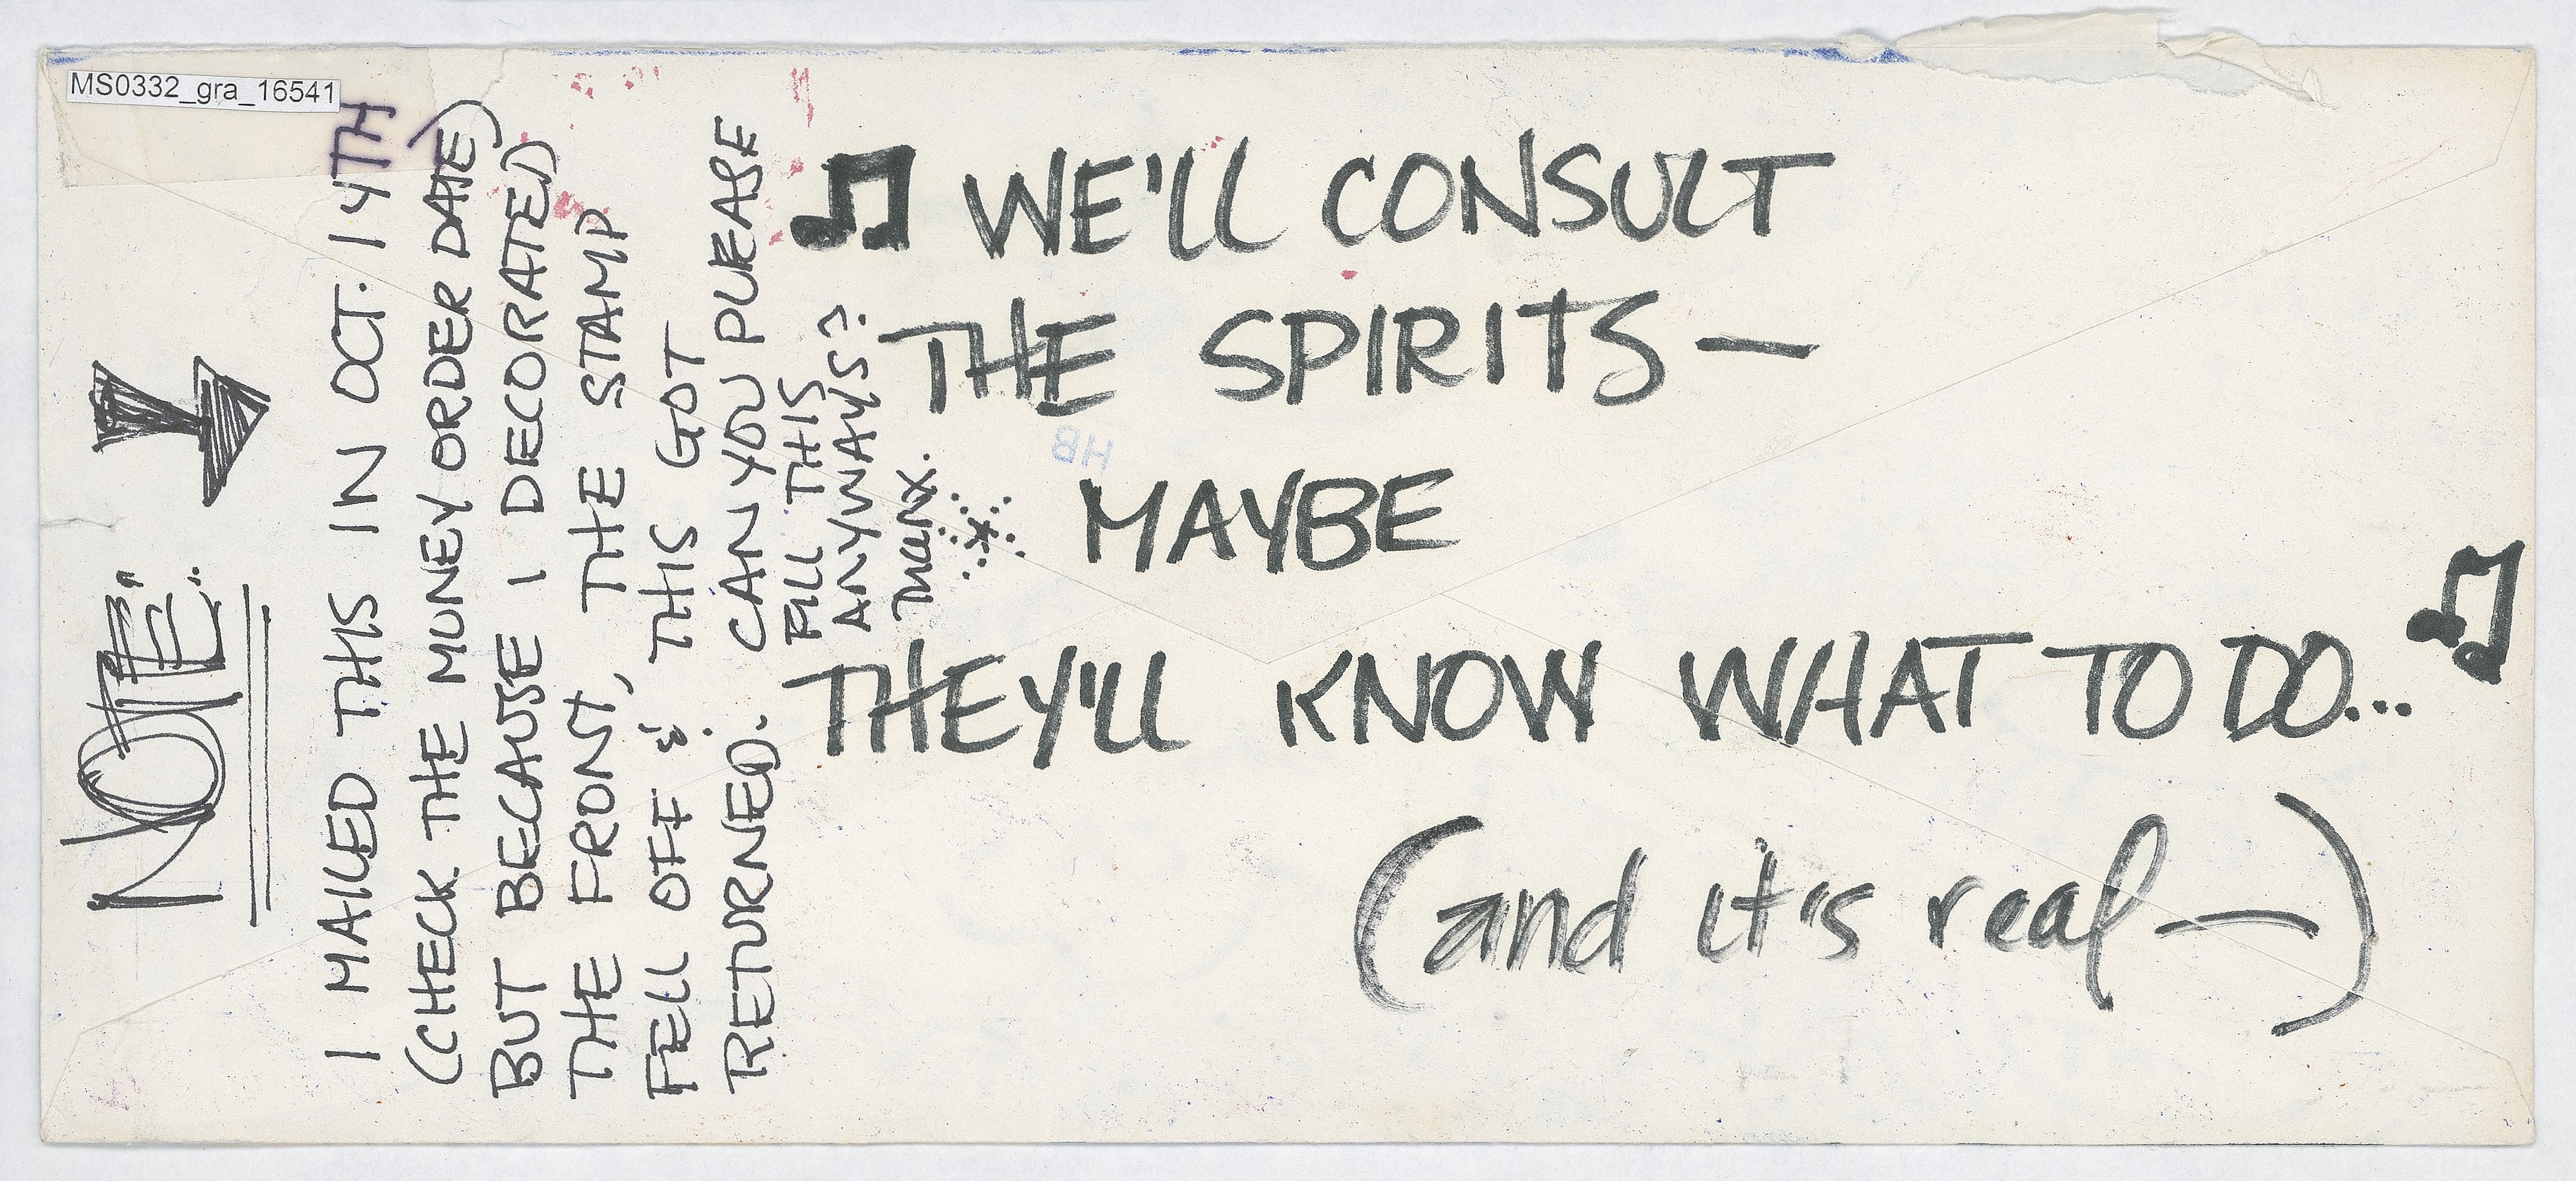 MS0332_gra_16541
NOTE:
I MAILED THIS IN OCT. 14TH
(CHECK THE MONEY ORDER DATE)
BUT BECAUSE I DECORATED
THE FRONT, THE STAMP
FELL OFF & THIS GOT
RETURNED. CAN YOU PLEASE
FILL THIS
ANYWAYS?
Thanx.
WE'LL CONSULT
THE SPIRITS —
HB
MAYBE
THEY'LL KNOW WHAT TO DO...
(and it's real —)